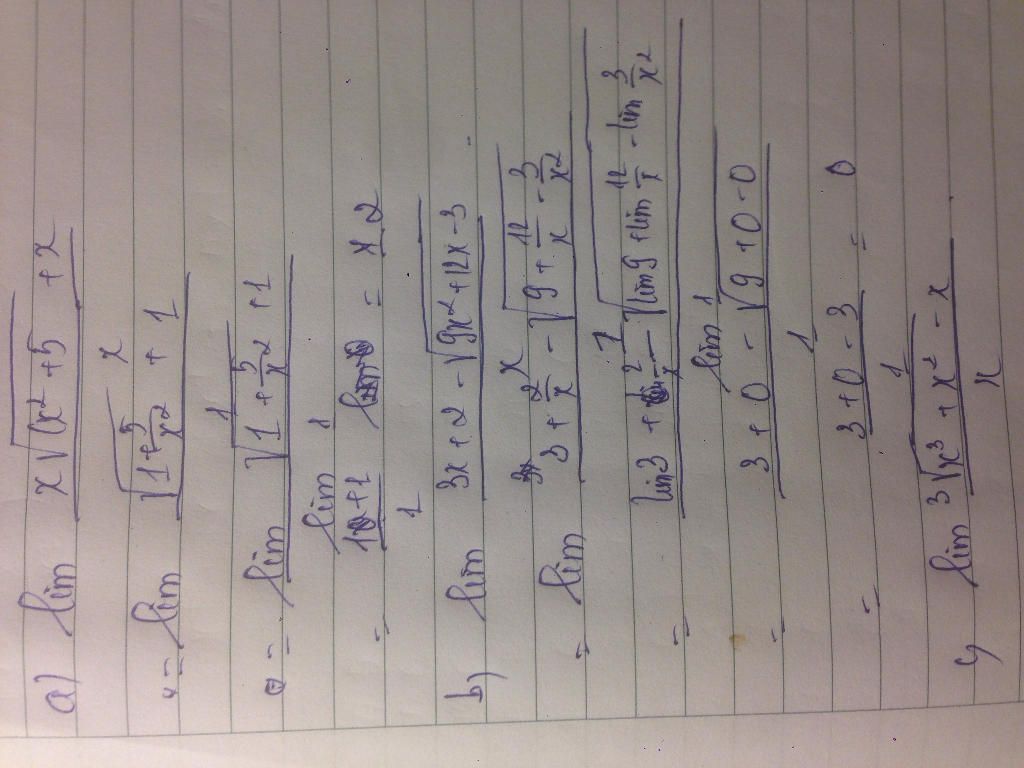 a) lim (x√(x²+5) + x)/x
= lim (√(1+5/x²) + 1)/1
= lim (√(1+5/x²) + 1)/lim 1
= (1+1)/1 = 2
b) lim (3x+2 - √(9x²+12x-3))/x
= lim (3+2/x - √(9+12/x-3/x²))/1
= (lim 3 + 2/x - √(lim 9 + lim 12/x - lim 3/x²))/lim 1
= (3+0 - √(9+0-0))/1
= (3+0-3)/1 = 0
c) lim (3√(x³+x²) - x)/x